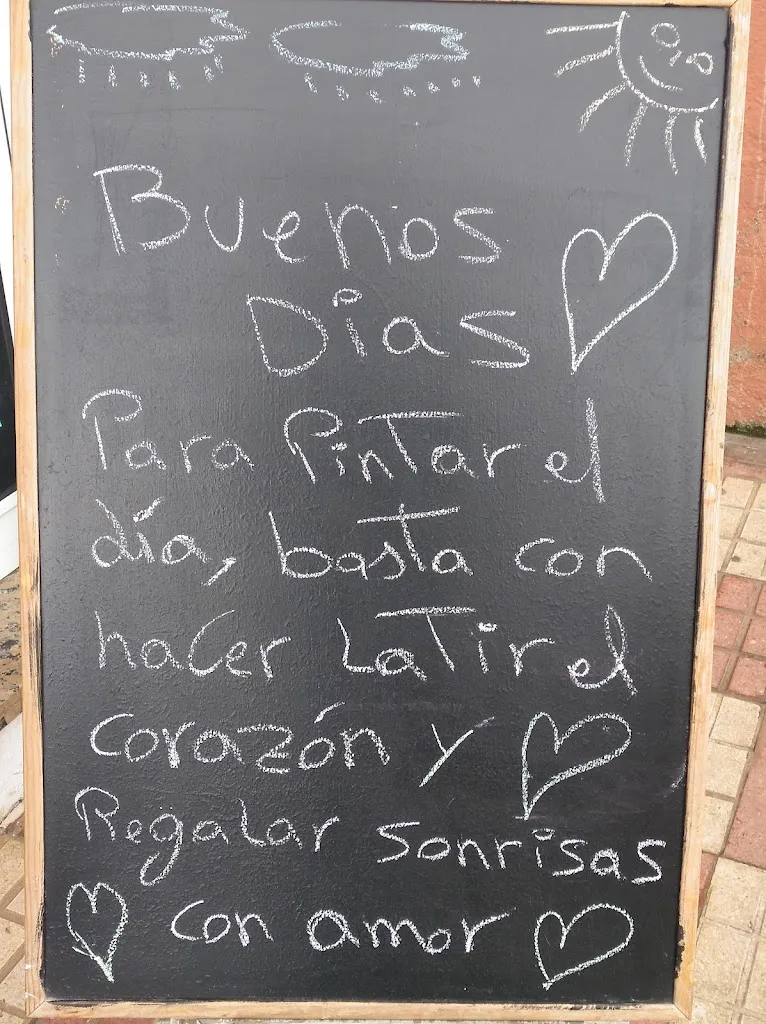 Buenos
Dias
Para Pintar el
día, basta con
hacer Latir el
corazón y
Regalar sonrisas
con amor